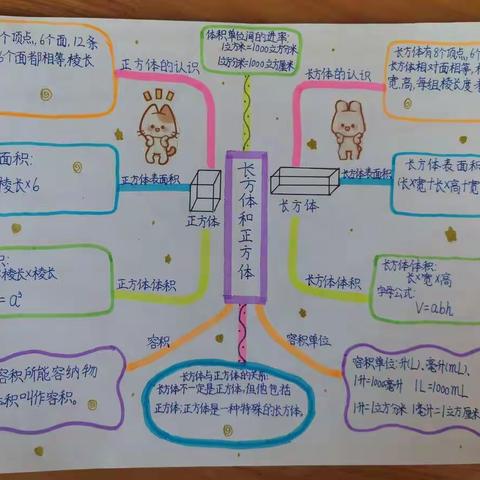 个顶点,6个面,12条
6个面都相等,棱长
正方体的认识
体积单位间的进率:
1立方米=1000立方分米
1立方分米=1000立方厘米
长方体的认识
长方体有8个顶点,6个
长方体相对面相等,
宽,高,每组棱长度
面积:
棱长×6
正方体表面积
正方体
长方体和正方体
长方体
长方体表面积
长方体表面积
(长×宽+长×高+宽
积:
棱长×棱长
=a³
正方体体积
长方体体积
长方体体积:
长×宽×高
字母公式:
V=abh
容积
容积单位
容积所能容纳物
体积叫作容积。
长方体与正方体的关系:
长方体不一定是正方体,但他包括
正方体,正方体是一种特殊的长方体。
容积单位:升(L)、毫升(mL)、
1升=1000毫升 1L=1000mL
1升=1立方分米 1毫升=1立方厘米